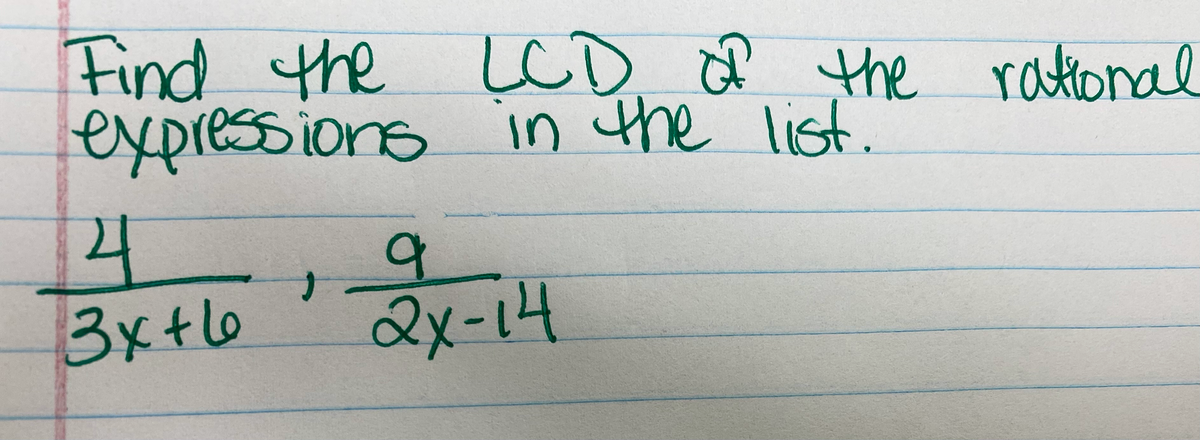 Find the LCD of the rational
expressions in the list.
4/(3x+6) , 9/(2x-14)